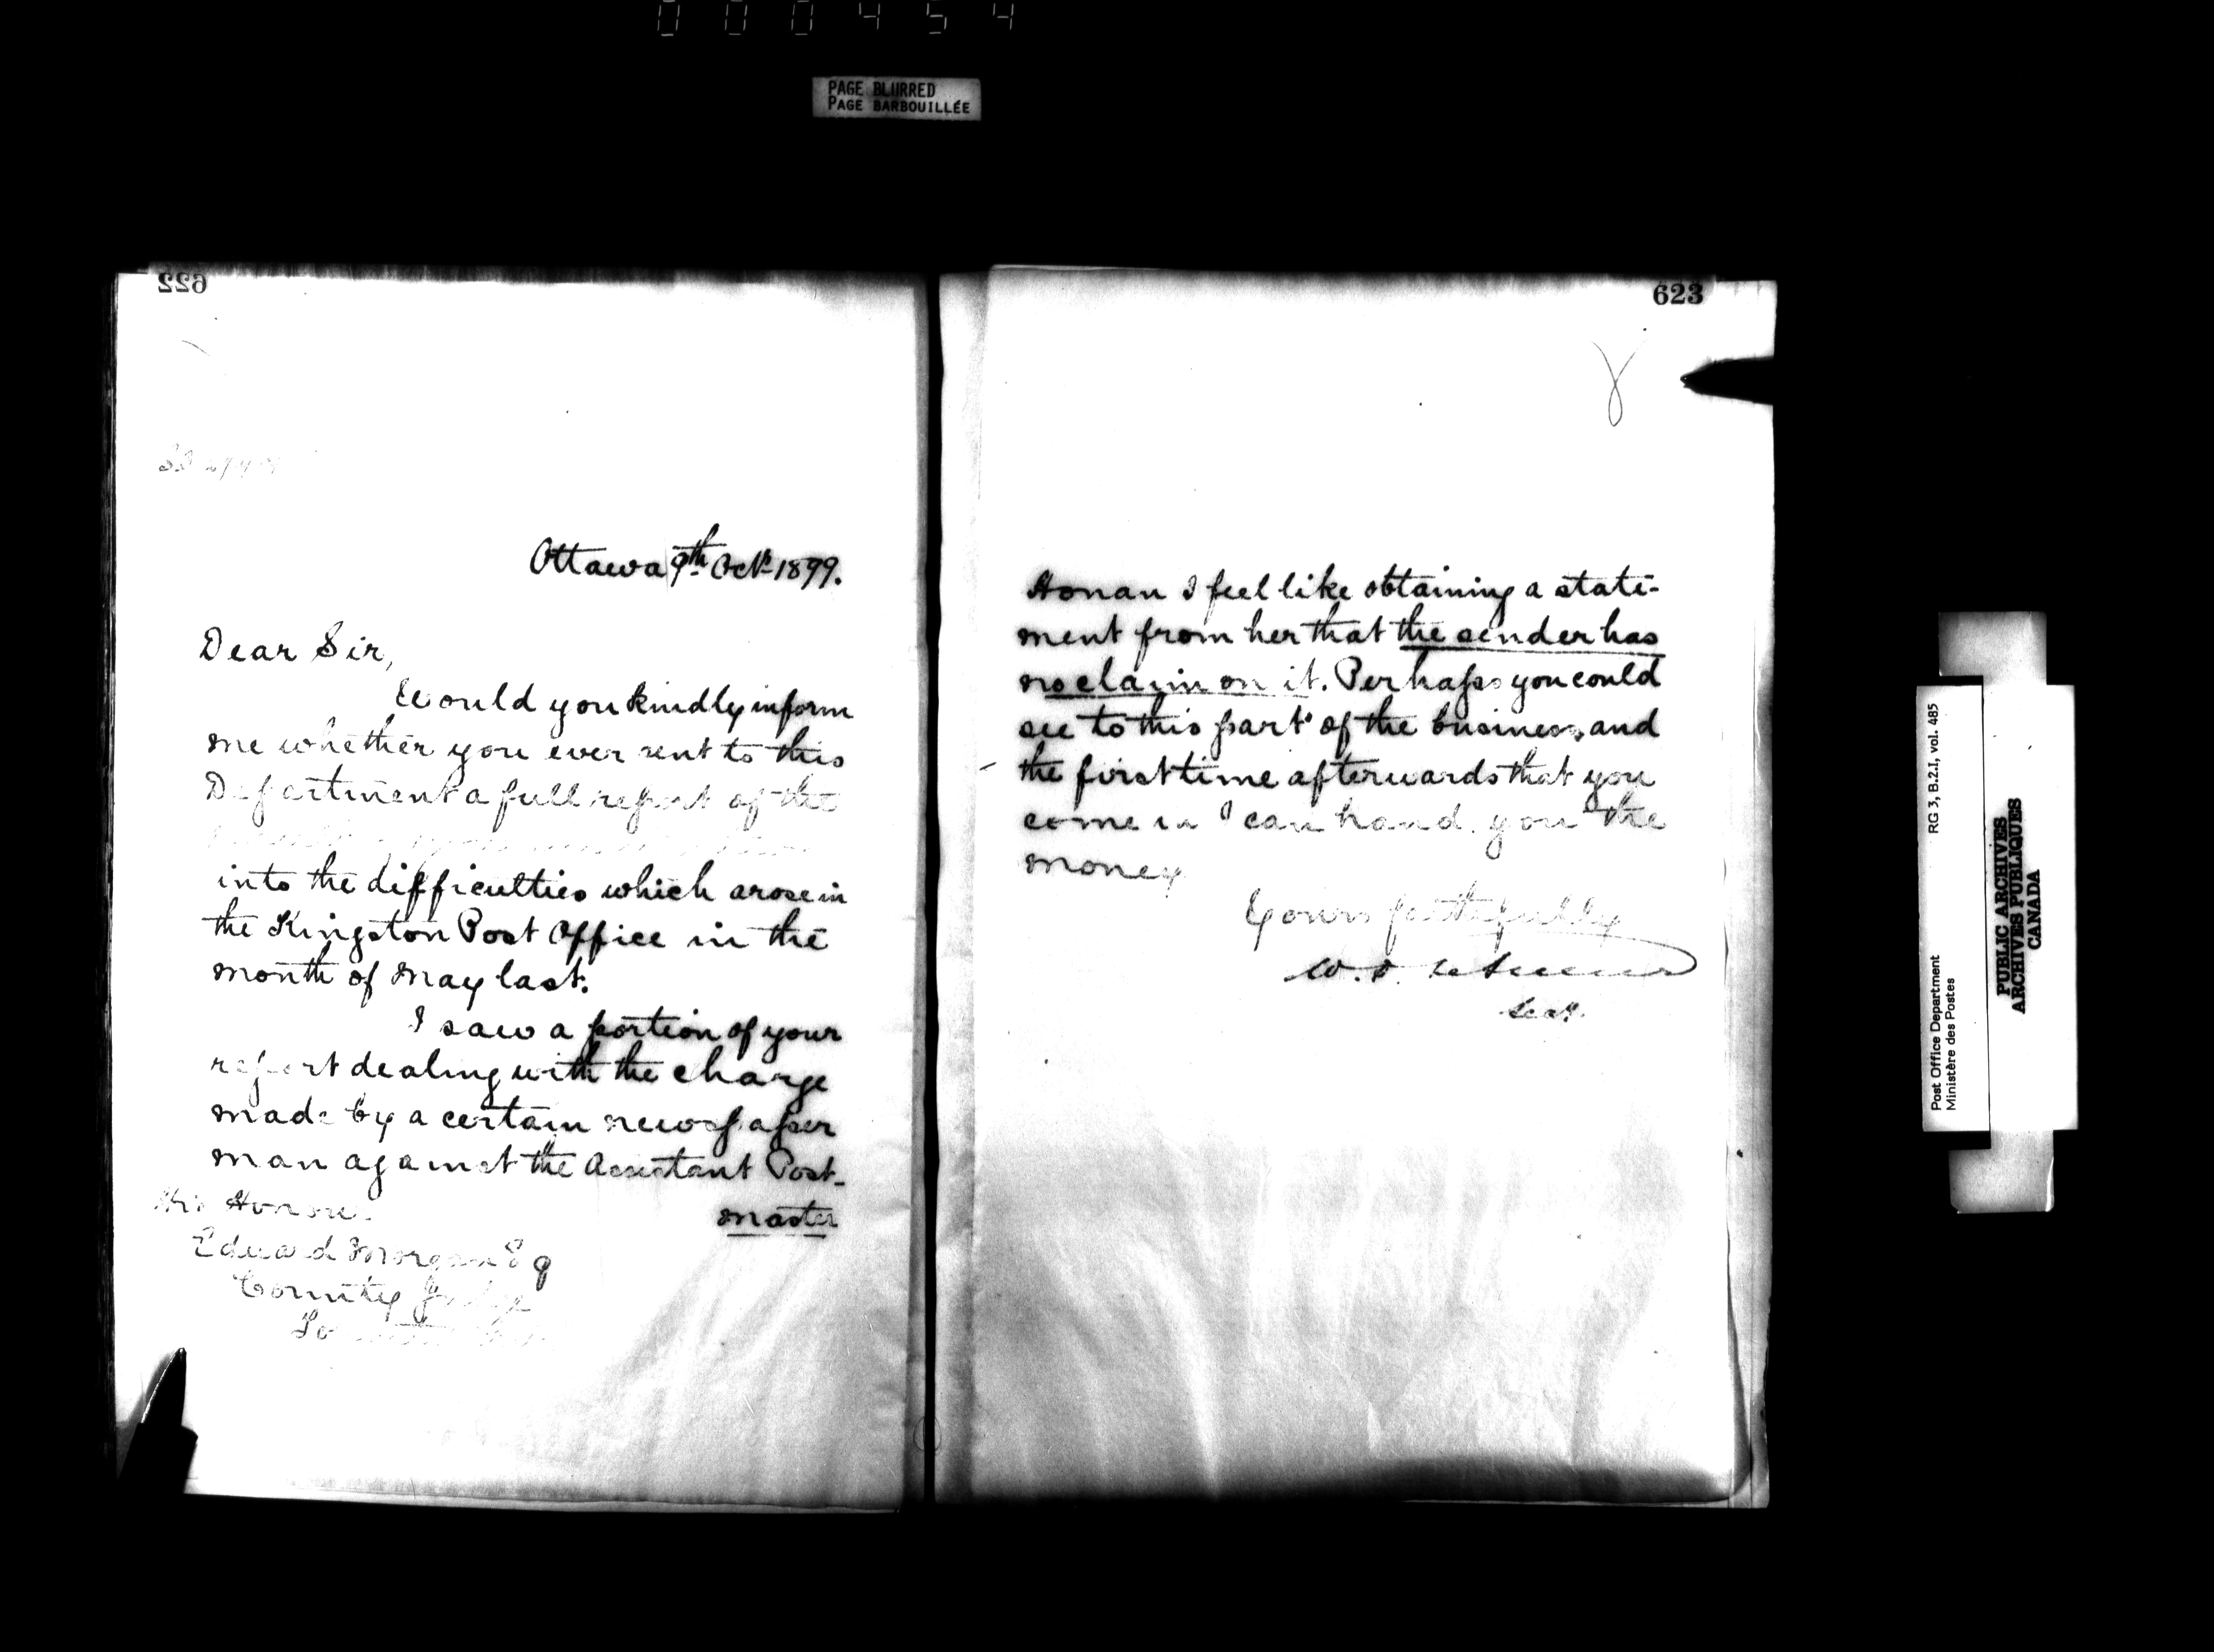 000454
PAGE BLURRED
PAGE BARBOUILLÉE
622
Ottawa 9th Octr 1899.
Dear Sir,
Would you kindly inform
me whether you ever sent to this
Department a full report of the
into the difficulties which arose in
the Kingston Post Office in the
month of May last.
I saw a portion of your
report dealing with the charge
made by a certain newspaper
man against the Assistant Post-
master
His Honour
Edward Morgan Esq
County Judge
623
Honan I feel like obtaining a state-
ment from her that the sender has
no claim on it. Perhaps you could
see to this part of the business, and
the first time afterwards that you
come in I can hand you the
money
Yours faithfully
W.D. LeSueur
Secy.
Post Office Department
Ministère des Postes
RG 3, B.2.I, vol. 485
PUBLIC ARCHIVES
ARCHIVES PUBLIQUES
CANADA